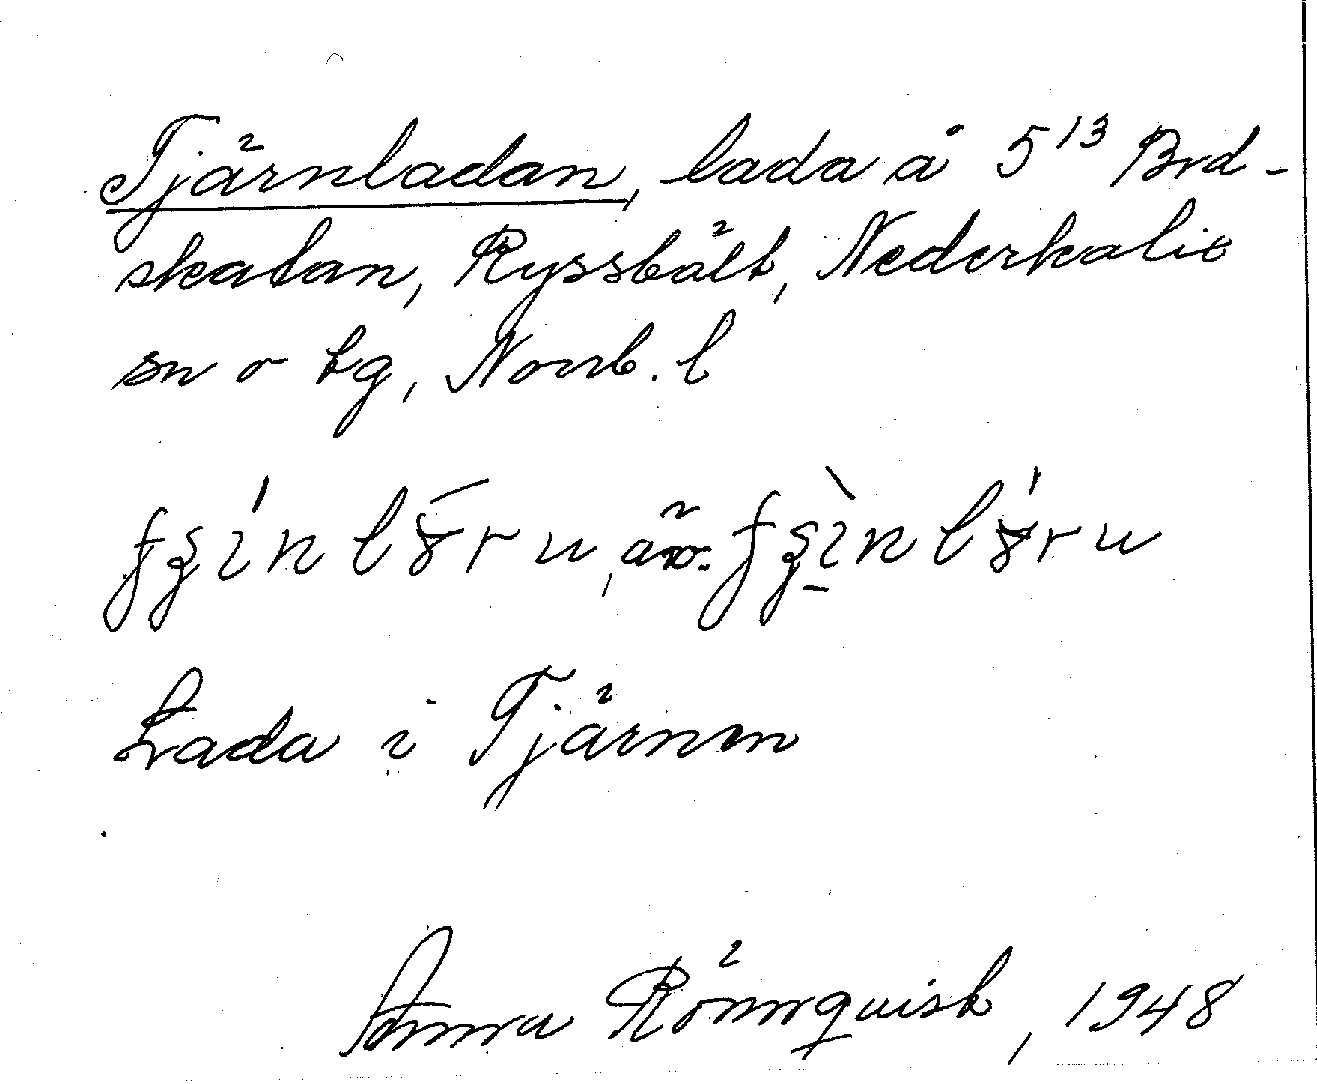 Tjärnladan, lada å 5¹³ Brd-
skatan, Ryssbält, Nederkalix
sn o tg, Norrb. l
Lada i Tjärnen
Anna Rönnquist, 1948